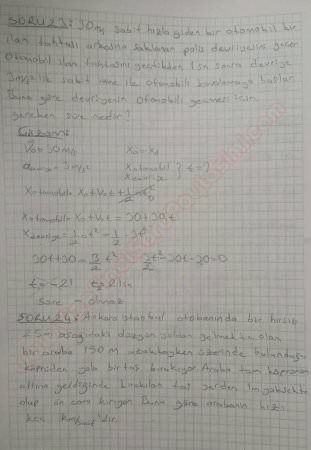 SORU23: 30m/s sabit hızla giden bir otomobil bir
ilan tahtası arkasına saklanan polis devriyesini geçer
Otomobil ilan tahtasını geçtikten 1sn sonra devriye
3m/s² lik sabit ivme ile otomobili kovalamaya başlar
Buna göre devriyenin otomobili geçmesi için
gereken süre nedir?
Çözüm:
V₀ = 30m/s x₀ = x₀
= 3m/s² x otomobil ? t=?
x devriye
x otomobil = x₀ + V₀t + 1/2
x otomobil = x₀ + V₀t = 30 + 30t
x devriye = 1/2 t² = 1/2 3t²
30t + 30 = 3/2 t² 3/2 t² - 30t - 30 = 0
t = 21sn
Süre - olmaz
SORU24: Ankara İstanbul otobanında bir hırsız
25m aşağıdaki düzgün yoldan gelmekte olan
bir araba 150 m uzaktayken üzerinde bulunduğu
köprüden yola bir taş bırakıyor. Araba tam köprünün
altına geldiğinde bırakılan taş yerden 1m yüksekte
olup ön camı kırıyor. Buna göre arabanın hızı
kaç km/saat'dir